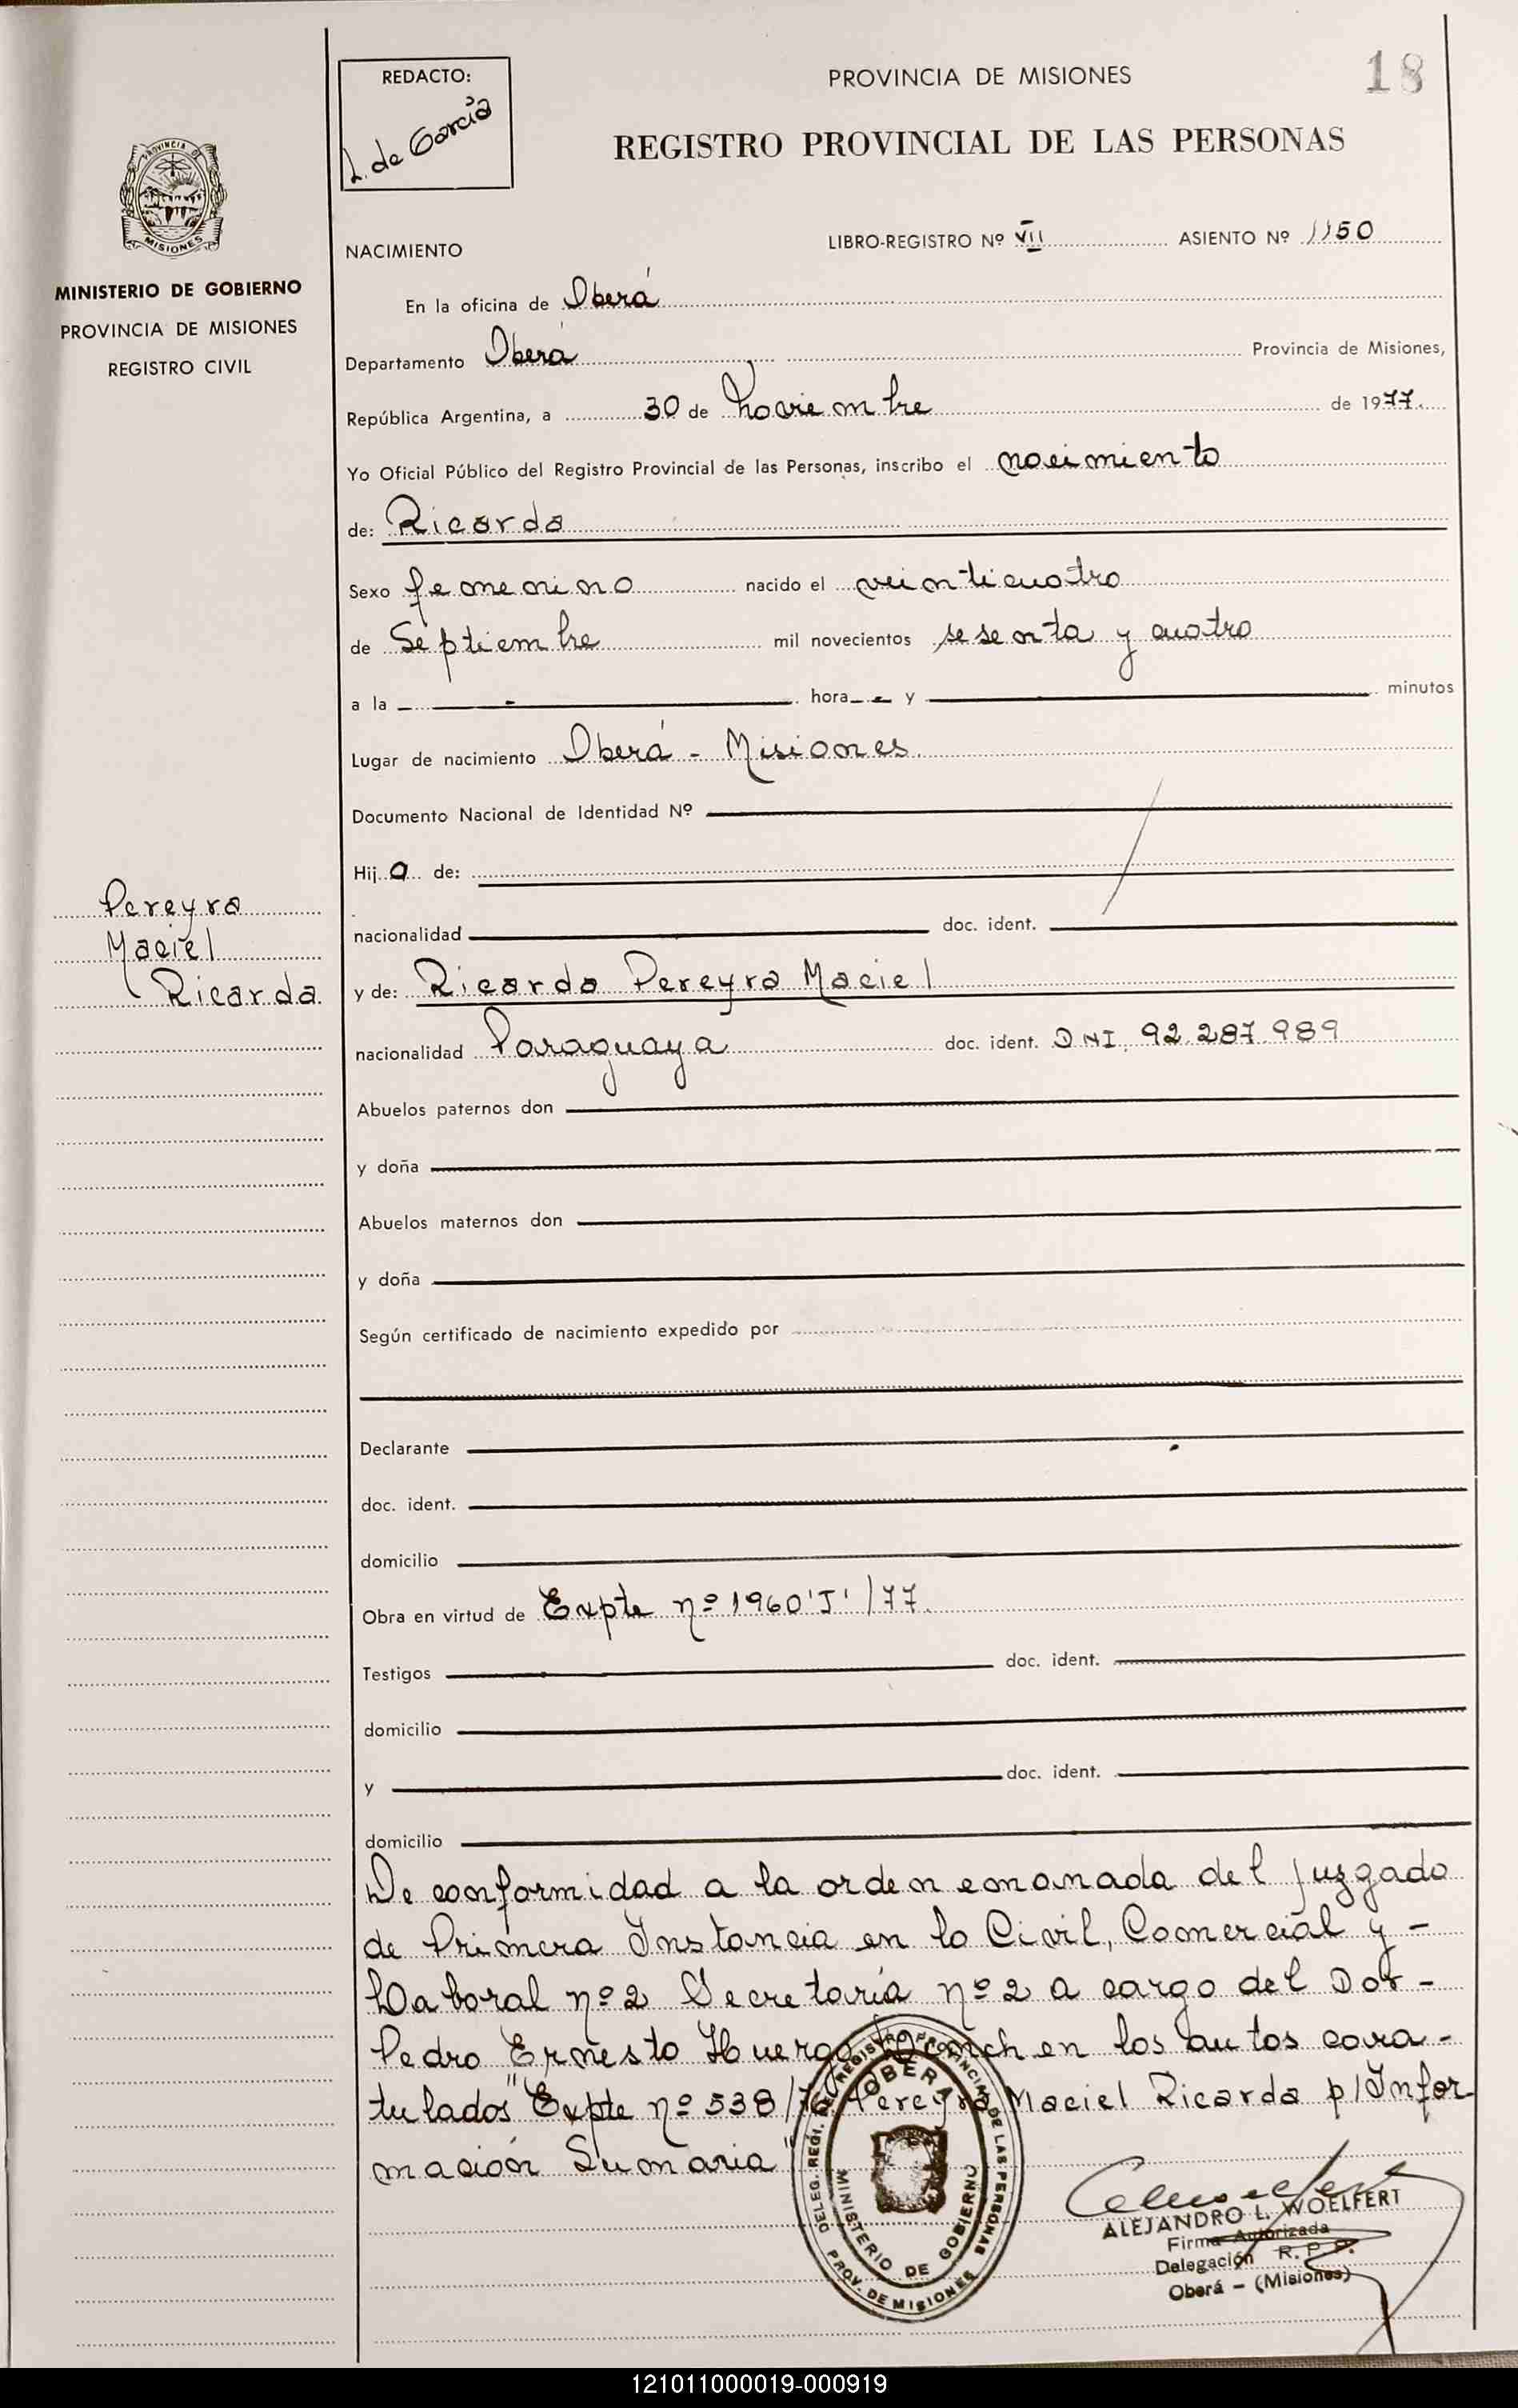 REDACTO:
L. de García
PROVINCIA DE MISIONES
18
REGISTRO PROVINCIAL DE LAS PERSONAS
PROVINCIA DE
MISIONES
MINISTERIO DE GOBIERNO
PROVINCIA DE MISIONES
REGISTRO CIVIL
NACIMIENTO
LIBRO-REGISTRO Nº VII ASIENTO Nº 1150
En la oficina de Oberá
Departamento Oberá Provincia de Misiones,
República Argentina, a 30 de Noviembre de 1977.
Yo Oficial Público del Registro Provincial de las Personas, inscribo el nacimiento
de: Ricarda
Sexo femenino nacido el veinticuatro
de Septiembre mil novecientos sesenta y cuatro
a la hora y minutos
Lugar de nacimiento Oberá - Misiones.
Documento Nacional de Identidad Nº
Hija de:
nacionalidad doc. ident.
Pereyra
Maciel
Ricarda.
y de: Ricarda Pereyra Maciel
nacionalidad Paraguaya doc. ident. DNI. 92.287.989
Abuelos paternos don
y doña
Abuelos maternos don
y doña
Según certificado de nacimiento expedido por
Declarante
doc. ident.
domicilio
Obra en virtud de Expte nº 1960'J'/77.
Testigos doc. ident.
domicilio
y doc. ident.
domicilio
De conformidad a la orden emanada del Juzgado
de Primera Instancia en lo Civil, Comercial y -
Laboral nº 2 Secretaría nº 2 a cargo del Dor -
Pedro Ernesto Huergo en los autos cara-
tulados "Expte nº 538/76 Pereyra Maciel Ricarda p/Infor-
mación Sumaria"
DELEG. REGI. DEL REGISTRO PROVINCIAL DE LAS PERSONAS
OBERA
MINISTERIO DE GOBIERNO
PROV. DE MISIONES
ALEJANDRO L. WOELFERT
Firma Autorizada
Delegación R. P. P.
Oberá - (Misiones)
121011000019-000919